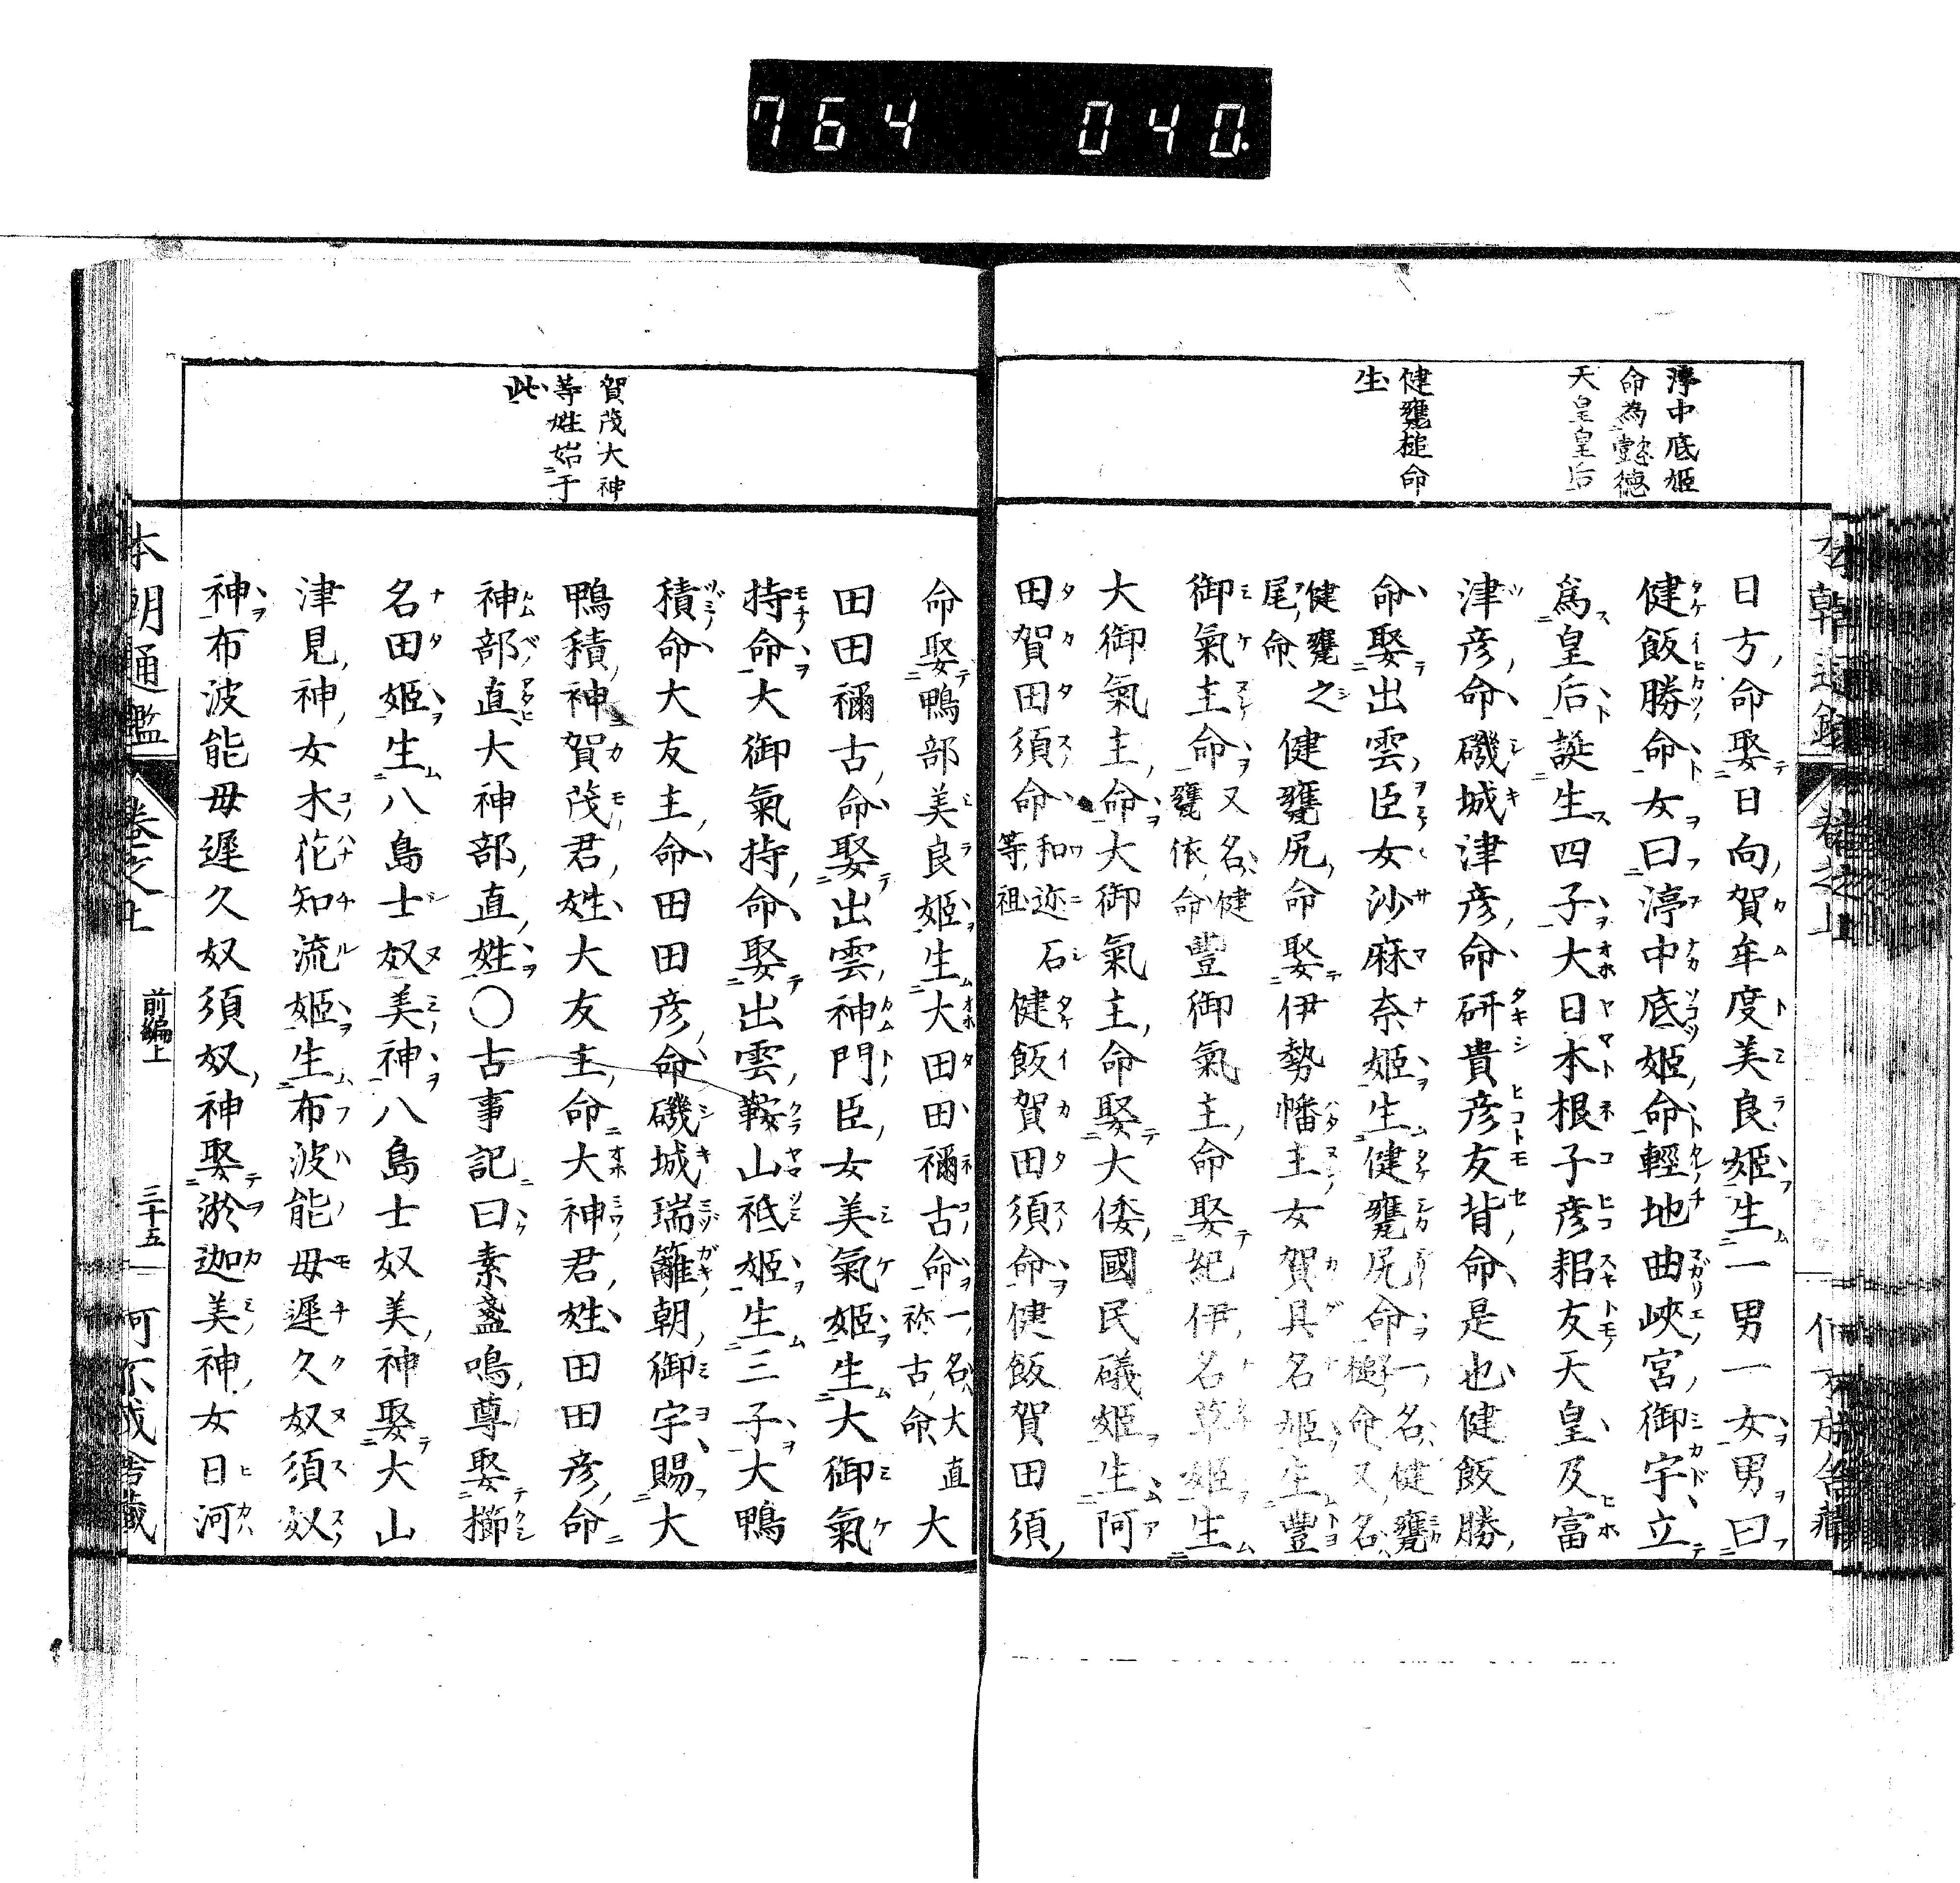 764 040.
渟中底姬
命為懿德
天皇皇后
健甕槌命
生
日方命娶日向賀牟度美良姬生一男一女男曰
健飯勝命女曰渟中底姬命輕地曲峽宮御宇立
爲皇后誕生四子大日本根子彦耜友天皇及富
津彦命磯城津彦命研貴彦友背命是也健飯勝
命娶出雲臣女沙麻奈姬生健甕尻命一名健甕
槌命又名
健甕之
尾命健甕尻命娶伊勢幡主女賀具名姬生豐
御氣主命又名健
甕依命豐御氣主命娶紀伊名草姬生
大御氣主命大御氣主命娶大倭國民礒姬生阿
田賀田須命和迩石
等祖健飯賀田須命健飯賀田須
賀茂大神
等姓始于
此
命娶鴨部美良姬生大田田禰古命一名大直
祢古命大
田田禰古命娶出雲神門臣女美氣姬生大御氣
持命大御氣持命娶出雲鞍山祇姬生三子大鴨
積命大友主命田田彦命磯城瑞籬朝御宇賜大
鴨積神賀茂君姓大友主命大神君姓田田彦命
神部直大神部直姓〇古事記曰素盞鳴尊娶櫛
名田姬生八島士奴美神八島士奴美神娶大山
津見神女木花知流姬生布波能母遲久奴須奴
神布波能毋遲久奴須奴神娶淤迦美神女日河
本朝通鑑
卷之上
前編上
三十五